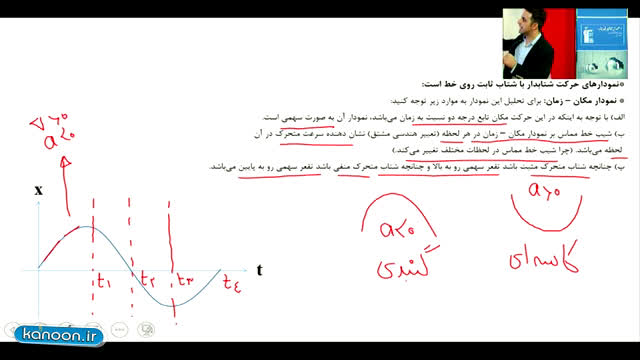 نمودارهای حرکت شتابدار با شتاب ثابت روی خط راست:
نمودار مکان – زمان: برای تحلیل این نمودار به موارد زیر توجه کنید:
الف) با توجه به اینکه در این حرکت مکان تابع درجه دو نسبت به زمان می‌باشد، نمودار آن به صورت سهمی است.
ب) شیب خط مماس بر نمودار مکان – زمان در هر لحظه (تعبیر هندسی مشتق) نشان دهنده سرعت متحرک در آن
لحظه می‌باشد. (چرا شیب خط مماس در لحظات مختلف تغییر می‌کند.)
پ) چنانچه شتاب متحرک مثبت باشد تقعر سهمی رو به بالا و چنانچه شتاب متحرک منفی باشد تقعر سهمی رو به پایین می‌باشد.
v>0
a<0
x
t
t۱
t۲
t۳
t٤
a<0
گنبدی
a>0
کاسه‌ای
kanoon.ir